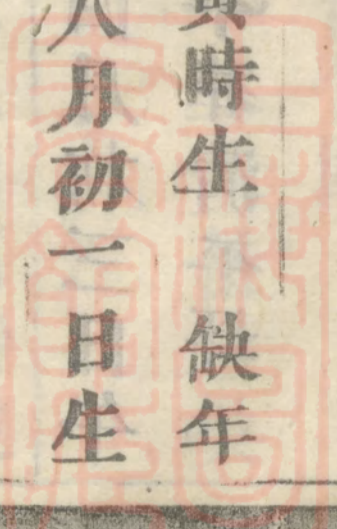 寅時生 缺年
八月初一日生